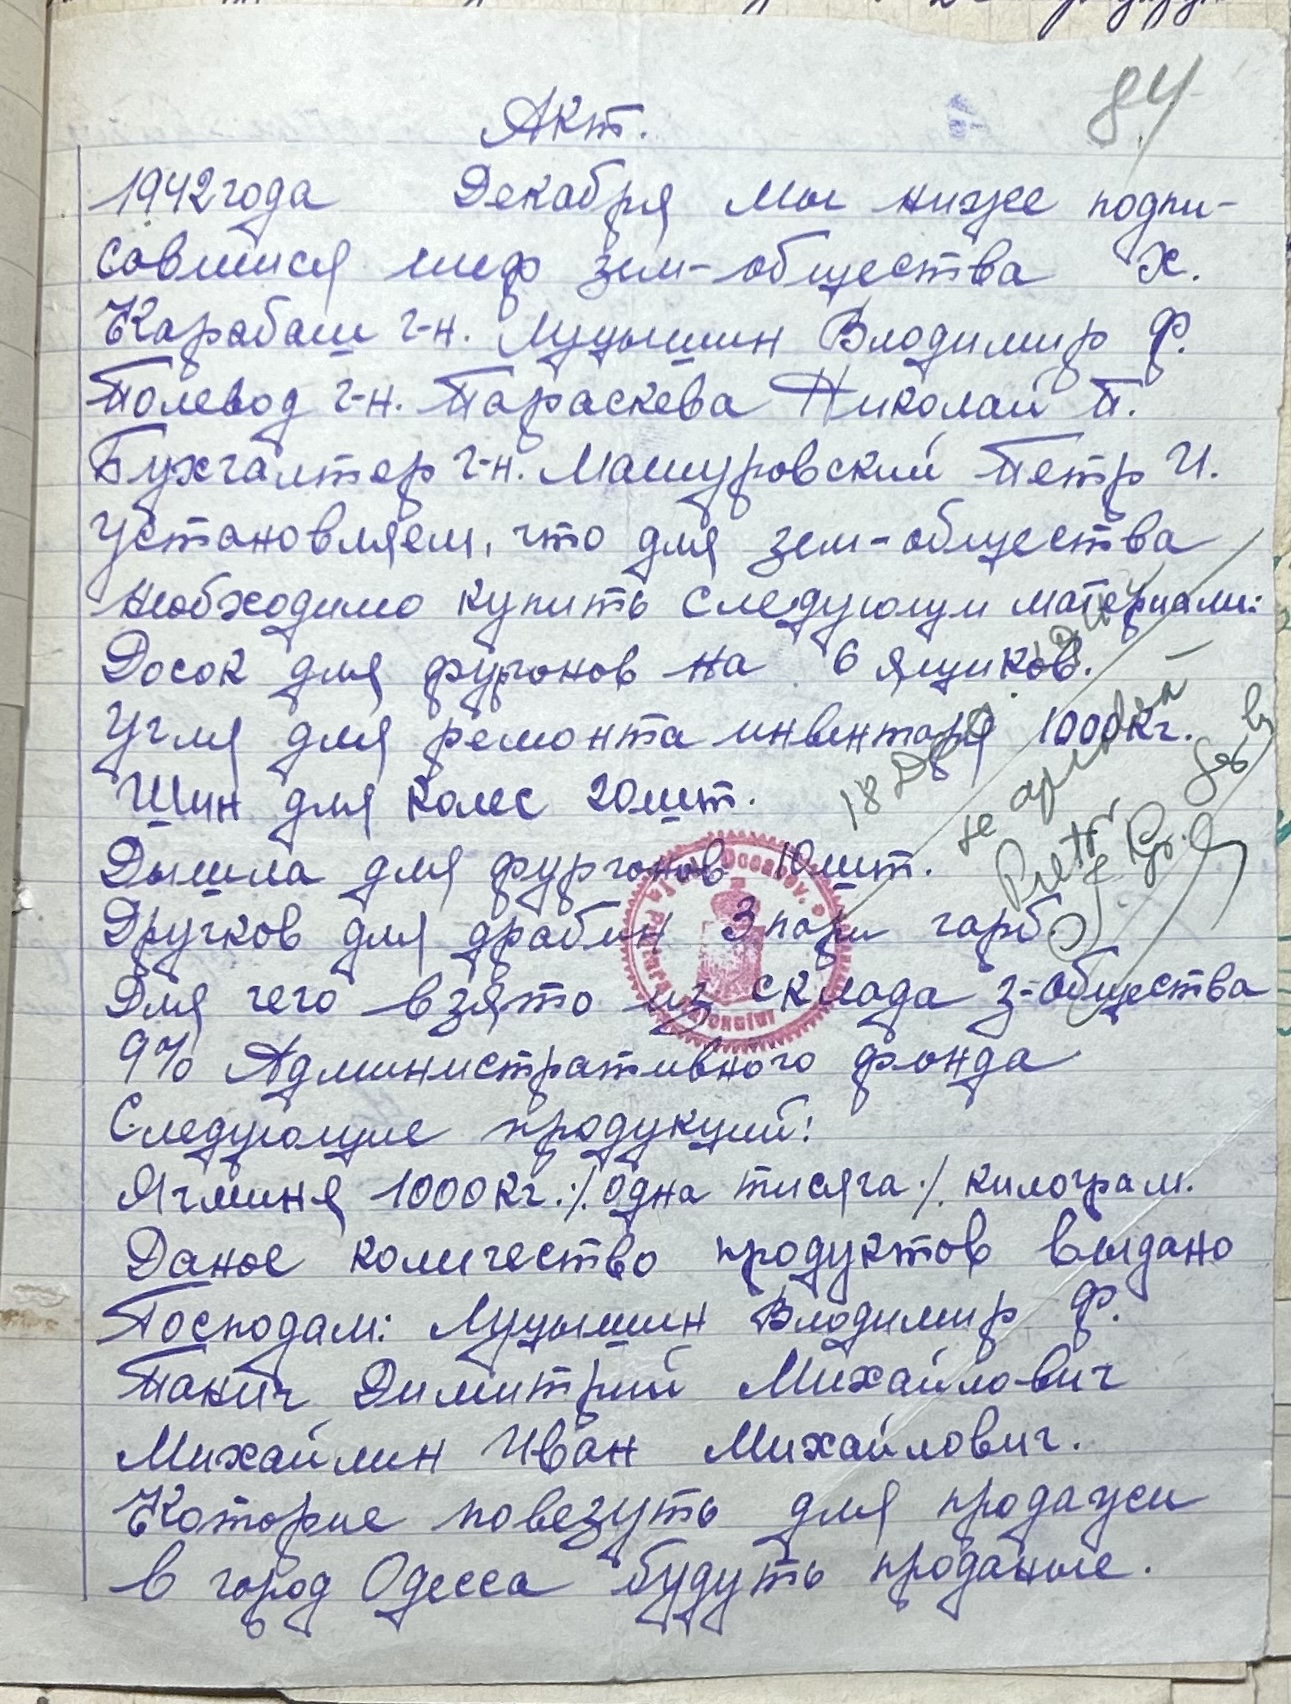 84
Акт.
1942 года Декабря мы ниже подпи-
савшися шеф зем-общества Х.
Карабаш г-н. Луцышин Владимир Ф.
Полевод г-н. Параскева Николай П.
Бухгалтер г-н. Машуровский Петр И.
Установляем, что для зем-общества
необходимо купить следующим материали:
Досок для фургонов на 6 ящиков.
Угля для ремонта инвентаря 1000 кг.
Шин для колес 20 шт.
Дышла для фургонов 10 шт.
Дручков для драбин 3 пари гарб
Для чего взято из склада з-общества
9% Административного фонда
Следующие продукций:
Ячминя 1000 кг. ·/. одна тисяча ·/. килограм.
Даное количество продуктов выдано
Господам: Луцышин Владимир Ф.
Панич Димитрий Михайлович
Михайлин Иван Михайлович.
Которие повезуть для продажи
в город Одесса будуть проданые.
18 Dec. 1942
se aprobă
Pretor